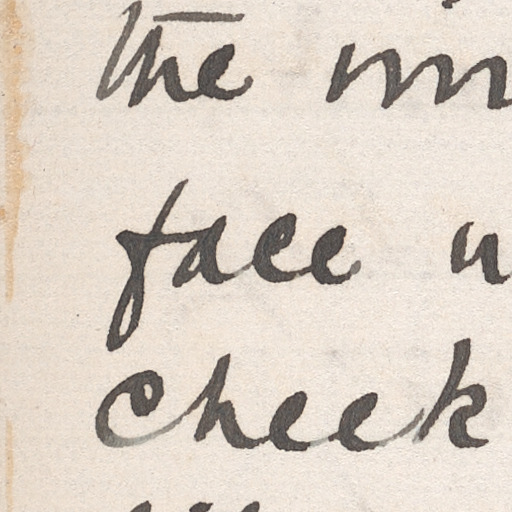 the
face
cheek